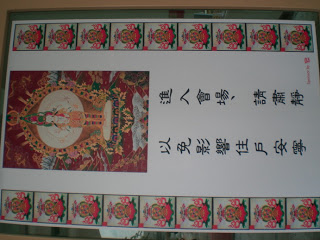 進入會場、請肅靜
以免影響住戶安寧